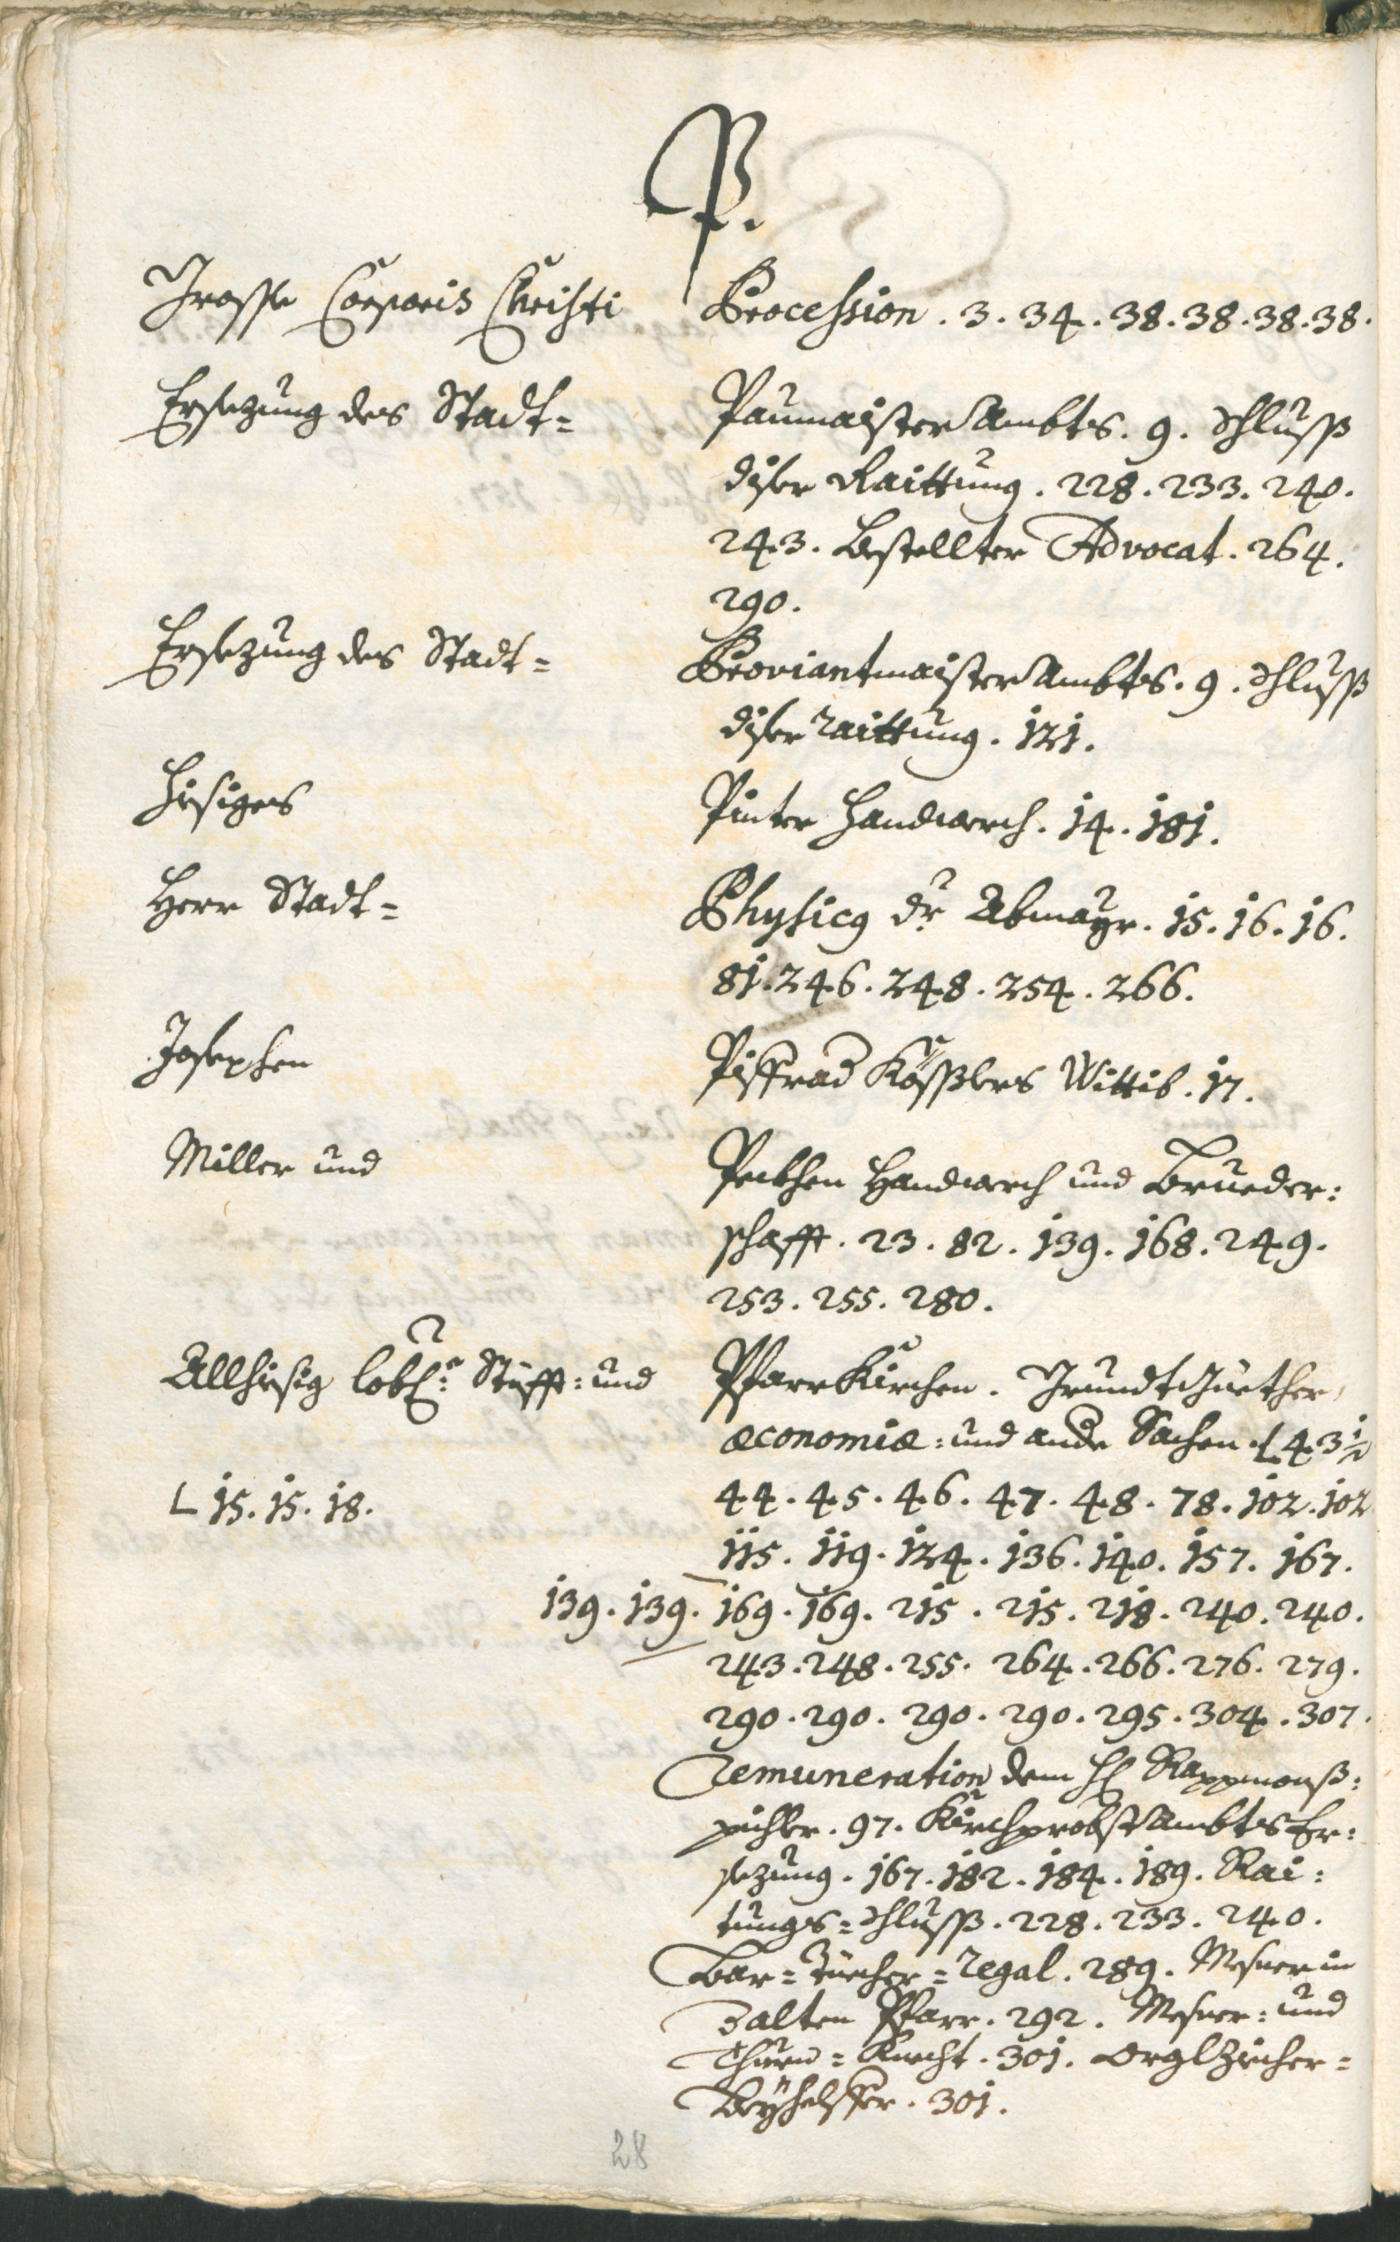 P.
Grosse Corporis Christi Procession . 3 . 34 . 38 . 38 . 38 . 38 .
Ersezung des Stadt= Paumaister Ambts . 9 . Schlusß
diser Raittung . 228 . 233 . 240 .
243 . Bestellter Advocat . 264 .
290 .
Ersezung des Stadt= Proviantmaister Ambts . 9 . Schlusß
diser raittung . 121 .
Hisiges Pinter Handwerch . 14 . 181 .
Herr Stadt= Physicus Dr Abmayr . 15 . 16 . 16 .
81 . 246 . 248 . 254 . 266 .
Josephen Pisfrad Kösßlers Wittib . 17 .
Miller und Peckhen Handwerch und Brueder:
schafft . 23 . 82 . 139 . 168 . 249 .
253 . 255 . 280 .
Allhisig lobl: Stüfft: und Pfarr Kirchen . Grundt Güether,
œconomiæ: und andr Sachen . L 43 1/2
L 15 . 15 . 18 . 44 . 45 . 46 . 47 . 48 . 78 . 102 . 102
115 . 119 . 124 . 136 . 140 . 157 . 167 .
139 . 139 . 169 . 169 . 215 . 215 . 218 . 240 . 240 .
243 . 248 . 255 . 264 . 266 . 276 . 279 .
290 . 290 . 290 . 290 . 295 . 304 . 307 .
Remuneration dem H
pichler . 97 . Kirchprobst Ambts Er:
sezung . 167 . 182 . 184 . 189 . Rai:
tungs=Schlusß . 228 . 233 . 240 .
Bar=Tüecher=regal . 289 . Mesner in
alten Pfarr . 292 . Mesner: und
Thurn=Knecht . 301 . Orglzieher=
Beÿhelffer . 301 .
28